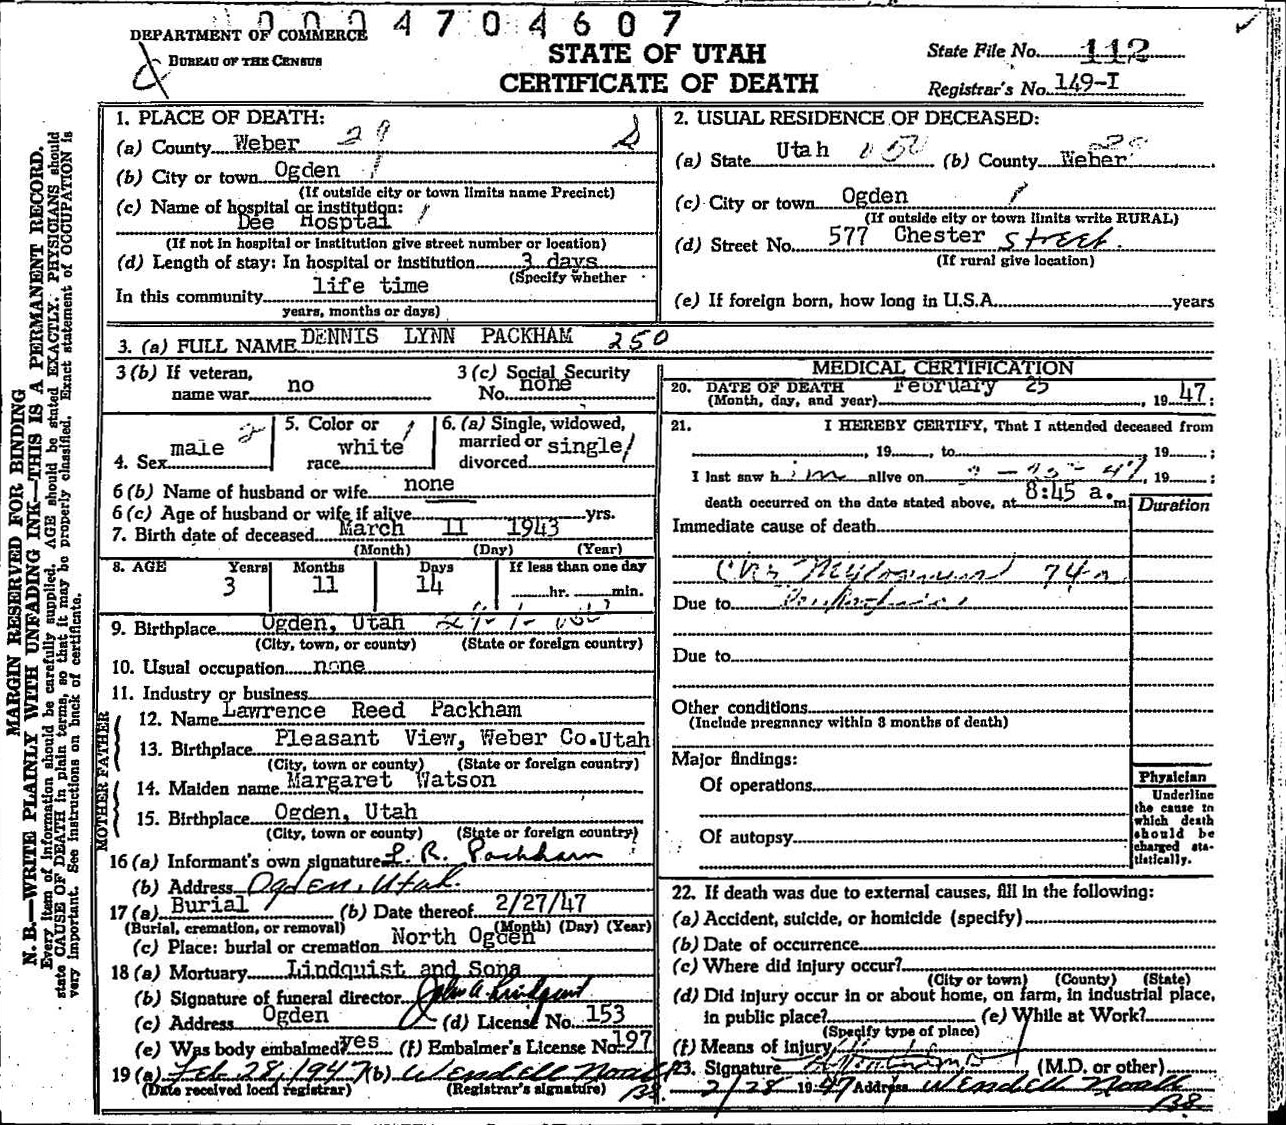 0004704607
DEPARTMENT OF COMMERCE
BUREAU OF THE CENSUS
STATE OF UTAH
CERTIFICATE OF DEATH
State File No. 112
Registrar's No. 149-I
MARGIN RESERVED FOR BINDING
N. B.—WRITE PLAINLY WITH UNFADING INK—THIS IS A PERMANENT RECORD.
Every item of information should be carefully supplied. AGE should be stated EXACTLY. PHYSICIANS should
state CAUSE OF DEATH in plain terms, so that it may be properly classified. Exact statement of OCCUPATION is
very important. See instructions on back of certificate.
1. PLACE OF DEATH:
(a) County Weber 29
(b) City or town Ogden 1
(If outside city or town limits name Precinct)
(c) Name of hospital or institution:
Dee Hosptal
(If not in hospital or institution give street number or location)
(d) Length of stay: In hospital or institution 3 days
(Specify whether
In this community life time
years, months or days)
2. USUAL RESIDENCE OF DECEASED:
(a) State Utah (b) County Weber
(c) City or town Ogden
(If outside city or town limits write RURAL)
(d) Street No. 577 Chester Street.
(If rural give location)
(e) If foreign born, how long in U.S.A. years
3. (a) FULL NAME DENNIS LYNN PACKHAM 250
3 (b) If veteran,
name war no
3 (c) Social Security
No. none
4. Sex male 2
5. Color or
race white
6. (a) Single, widowed,
married or single
divorced
6 (b) Name of husband or wife none
6 (c) Age of husband or wife if alive yrs.
7. Birth date of deceased March 11 1943
(Month) (Day) (Year)
8. AGE Years Months Days If less than one day
3 11 14 hr. min.
9. Birthplace Ogden, Utah
(City, town, or county) (State or foreign country)
10. Usual occupation none
11. Industry or business
FATHER
12. Name Lawrence Reed Packham
13. Birthplace Pleasant View, Weber Co. Utah
(City, town or county) (State or foreign country)
MOTHER
14. Maiden name Margaret Watson
15. Birthplace Ogden, Utah
(City, town or county) (State or foreign country)
16 (a) Informant's own signature L. R. Packham
(b) Address Ogden, Utah.
17 (a) Burial (b) Date thereof 2/27/47
(Burial, cremation, or removal) (Month) (Day) (Year)
(c) Place: burial or cremation North Ogden
18 (a) Mortuary Lindquist and Sons
(b) Signature of funeral director John A. Lindquist
(c) Address Ogden (d) License No. 153
(e) Was body embalmed? yes (f) Embalmer's License No. 197
19 (a) Feb 28, 1947 (b) Wendell Noall
(Date received local registrar) (Registrar's signature) BB.
MEDICAL CERTIFICATION
20. DATE OF DEATH February 25
(Month, day, and year) , 1947;
21. I HEREBY CERTIFY, That I attended deceased from
, 19 , to , 19 ;
I last saw him alive on 2-25-47, 19 ;
death occurred on the date stated above, at 8:45 a.m.
Duration
Immediate cause of death
Due to
Due to
Other conditions
(Include pregnancy within 3 months of death)
Major findings:
Of operations
Of autopsy
Physician
Underline
the cause to
which death
should be
charged sta-
tistically.
22. If death was due to external causes, fill in the following:
(a) Accident, suicide, or homicide (specify)
(b) Date of occurrence
(c) Where did injury occur?
(City or town) (County) (State)
(d) Did injury occur in or about home, on farm, in industrial place,
in public place? (e) While at Work?
(Specify type of place)
(f) Means of injury
23. Signature (M.D. or other)
2/28 1947 Address Wendell Noall
BB.